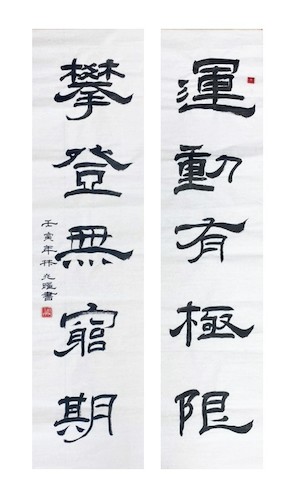 運動有極限
攀登無窮期
壬寅年林